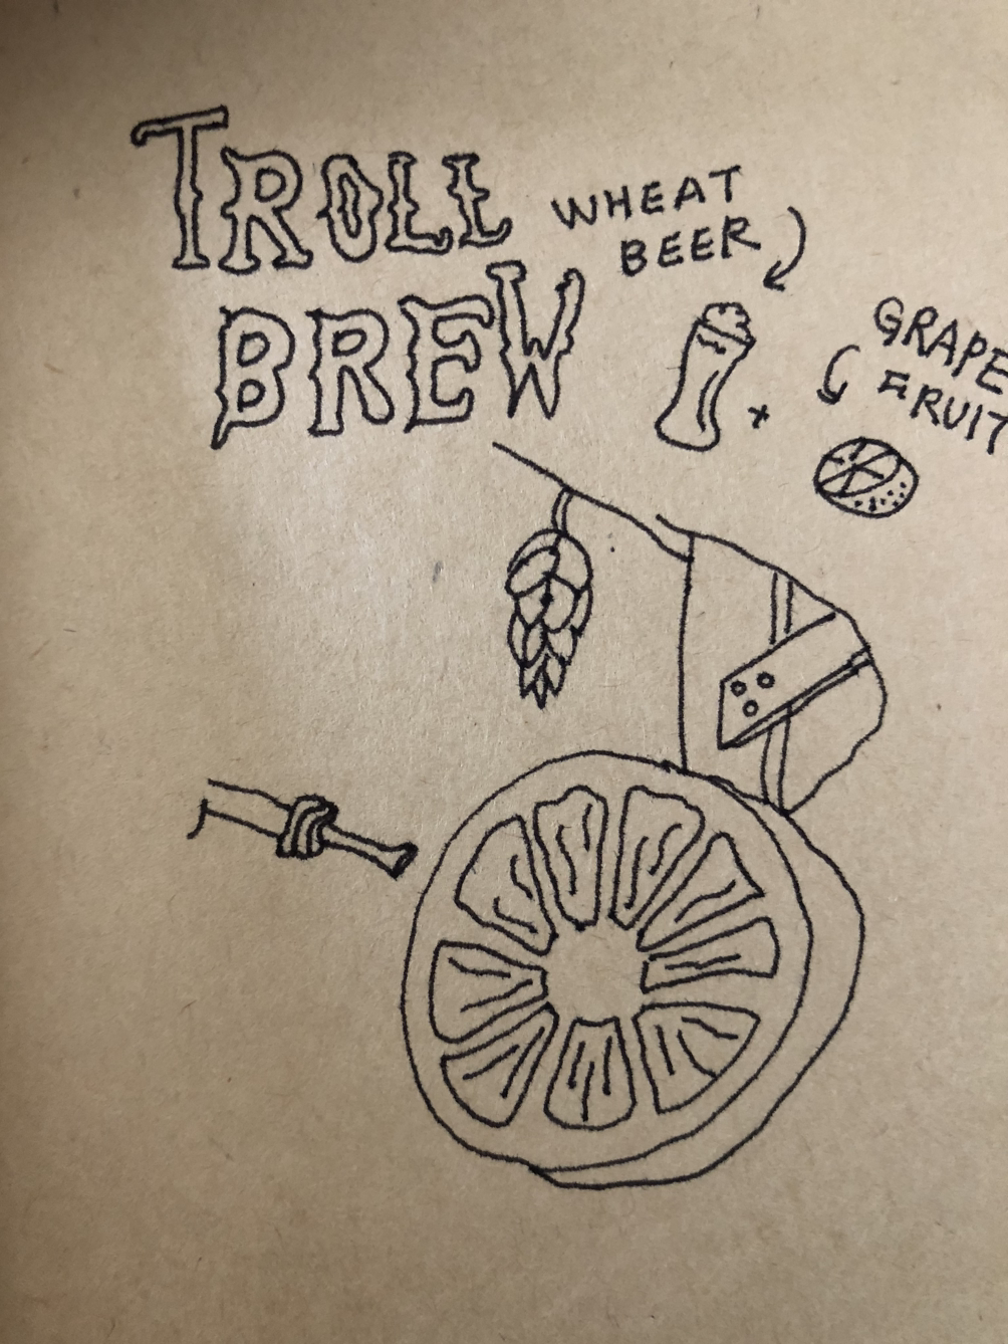 TROLL
BREW
WHEAT
BEER
GRAPE
FRUIT